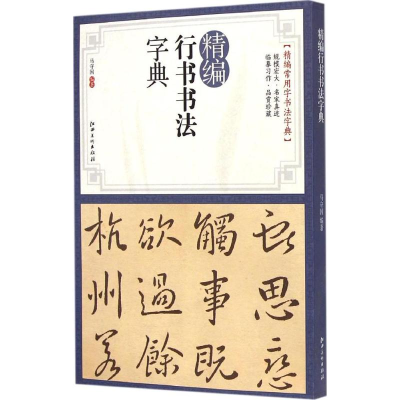 精编
行书书法
字典
马守国 编著
【精编常用字书法字典】
规模宏大·名家真迹
临摹习作·品赏珍藏
江西美术出版社
思恋
觸事既
欲過餘
杭州若
精编行书书法字典
马守国 编著
江西美术出版社